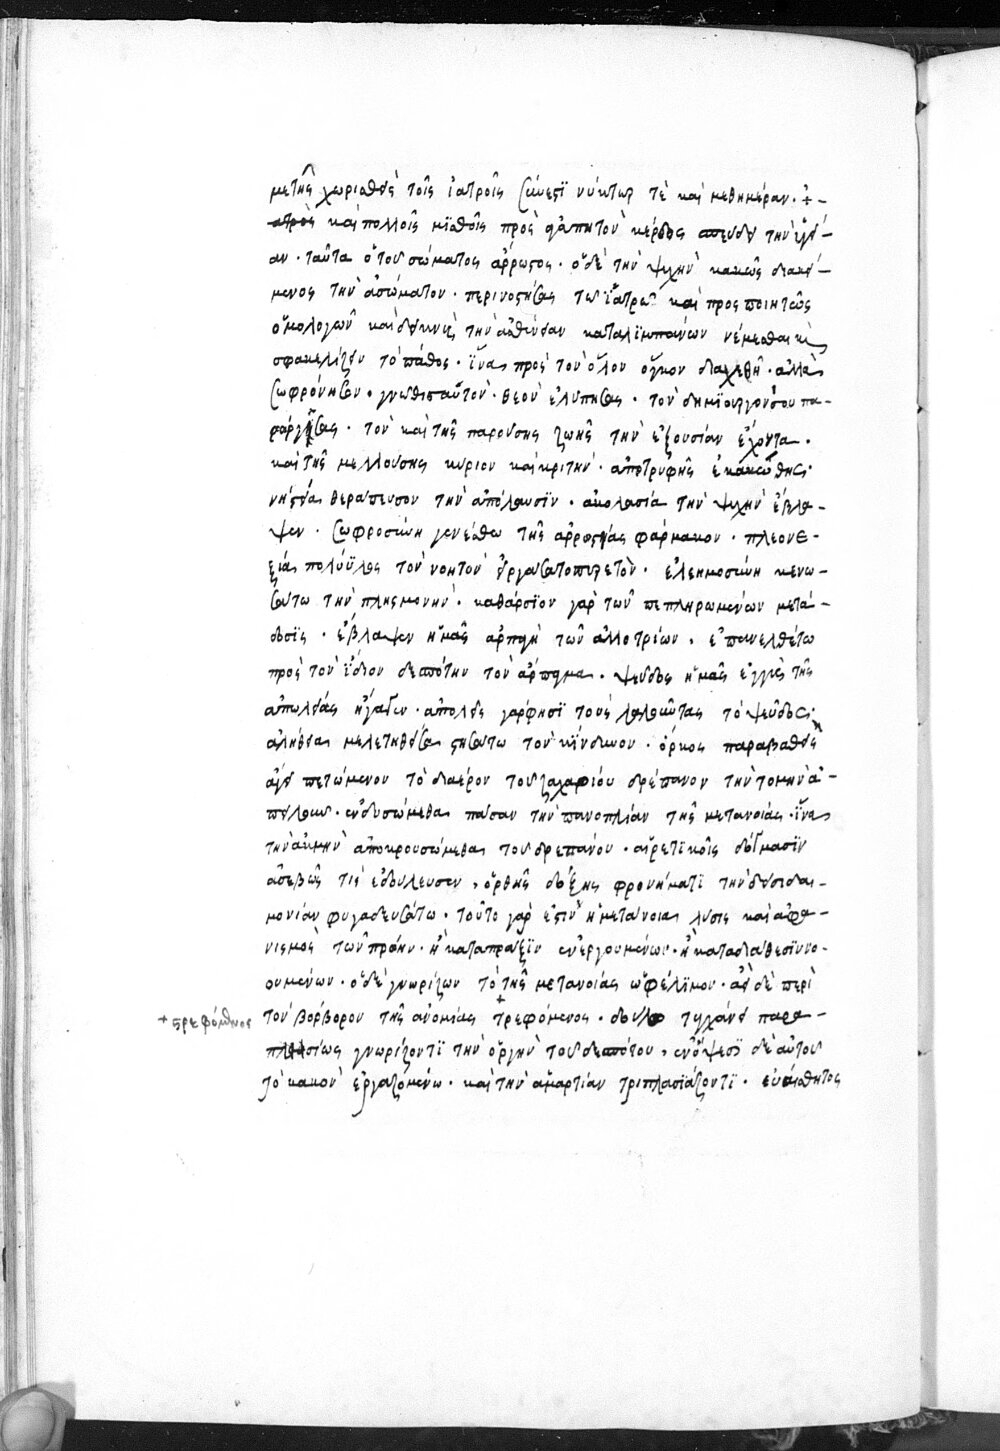 μετῆς χωρισθεὶς τοῖς ἰατροῖς σύνεστι νύκτωρ τὲ καὶ μεθημέραν·
καὶ πολλοῖς μισθοῖς πρὸς ἀγαπητὸν κέρδος σπεύδει τὴν ὑγεί-
αν· ταῦτα ὁ τοῦ σώματος ἄρρωστος· ὁ δὲ τὴν ψυχὴν κακῶς διακεί-
μενος τὴν ἀσώματον· περινοστήσας τὰ ἰατρεῖα καὶ προσποιητῶς
ὁμολογῶν καὶ δεικνὺς τὴν ἀσθένειαν καταλιμπάνων νέμεσθαι καὶ
σφακελίζειν τὸ πάθος· ἵνα πρὸς τὸν ὅλον ὄγκον διαχεθῆ· ἀλλὰ
σωφρόνησον· γνῶθι σαὐτόν· θεὸν ἐλύπησας· τὸν δημιουργόν σου πα-
ρώργισας· τὸν καὶ τῆς παρούσης ζωῆς τὴν ἐξουσίαν ἔχοντα·
καὶ τῆς μελλούσης κύριον καὶ κριτήν· ἀπὸ τρυφῆς ἐκακώθης·
νηστεία θεράπευσον τὴν ἀπόλαυσιν· ἀκολασία τὴν ψυχὴν ἔβλα-
ψεν· σωφροσύνη γενέσθω τῆς ἀρρωστίας φάρμακον· πλεονε-
ξία πολύϋλος τὸν νοητὸν εἰργάσατο πυρετόν· ἐλεημοσύνη κενω-
σάτω τὴν πλησμονήν· καθάρσιον γὰρ τῶν πεπληρωμένων μετά-
δοσις· ἔβλαψεν ἡμᾶς ἁρπαγὴ τῶν ἀλλοτρίων· ἐπανελθέτω
πρὸς τὸν ἴδιον δεσπότην τὸν ἅρπαγμα· ψεῦδος ἡμᾶς ἐγγὺς τῆς
ἀπωλείας ἤγαγεν· ἀπολεῖς γάρ φησι τοὺς λαλοῦντας τὸ ψεῦδος·
ἀλήθεια μελετηθεῖσα στησάτω τὸν κίνδυνον· ὅρκος παραβαθεὶς
ἄγει πετώμενον τὸ διαέρον τοῦ ζαχαρίου δρέπανον τὴν τομὴν ἀ-
πειλοῦν· ἐνδυσώμεθα πᾶσαν τὴν πανοπλίαν τῆς μετανοίας· ἵνα
τὴν ἀκμὴν ἀποκρουσώμεθα τοῦ δρεπάνου· αἱρετικοῖς δόγμασιν
ἀσεβῶς τις ἐδούλευσεν, ὀρθῆς δόξης φρονήματι τὴν δεισιδαι-
μονίαν φυγαδευσάτω· τοῦτο γάρ ἐστιν ἡ μετάνοια λύσις καὶ ἀφα-
νισμὸς τῶν πρώην· ἢ κατὰ πρᾶξιν ἐνεργουμένων· ἢ κατὰ διάθεσιν νο-
ουμένων· ὁ δὲ γνωρίζων τὸ τῆς μετανοίας ὠφέλιμον· ἀεὶ δὲ περὶ
τὸν βόρβορον τῆς ἀνομίας τρεφόμενος· δούλω τυγχάνει παρα-
+ στρεφόμενος
πλησίως γνωρίζοντι τὴν ὀργὴν τοῦ δεσπότου, ἐν ὄψεσι δὲ αὐτοῦ
τὸ κακὸν ἐργαζομένω· καὶ τὴν ἁμαρτίαν τριπλασιάζοντι· εὐαίσθητος